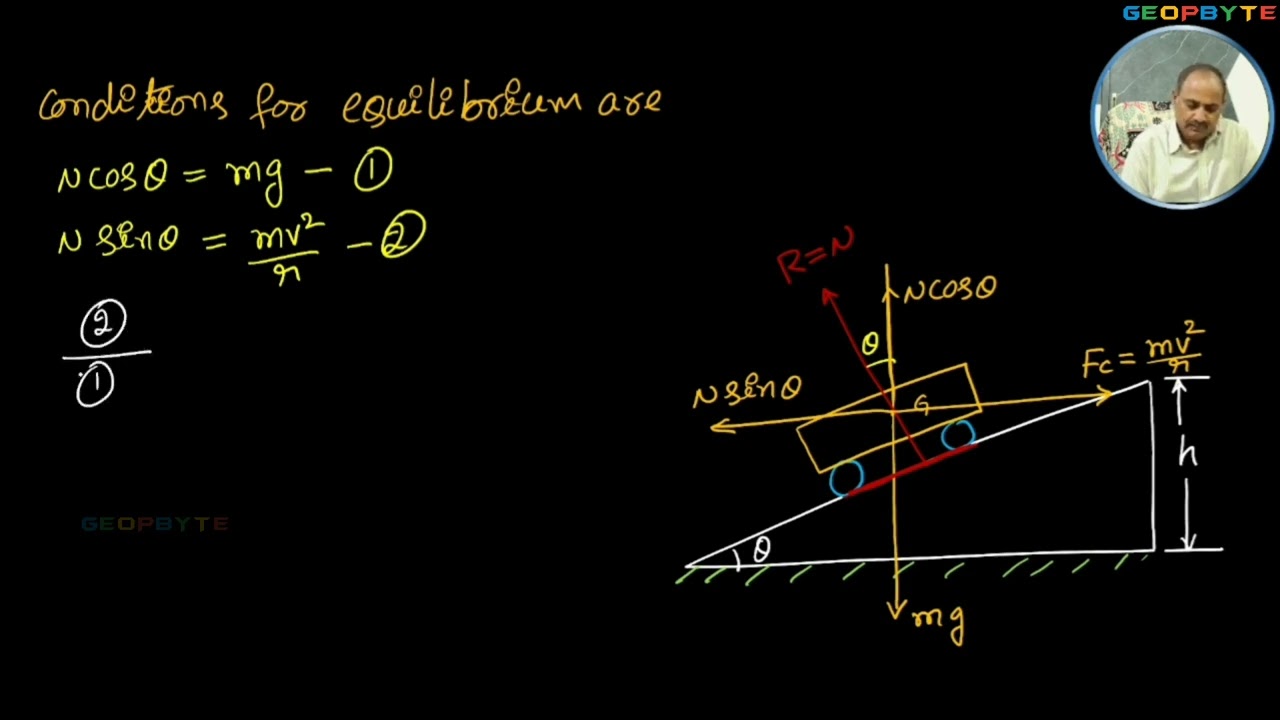 GEOPBYTE
conditions for equilibrium are
N cosθ = mg - ①
N sinθ = mv²/r - ②
②/①
R=N
N cosθ
θ
Fc = mv²/r
N sinθ
G
h
GEOPBYTE
θ
mg